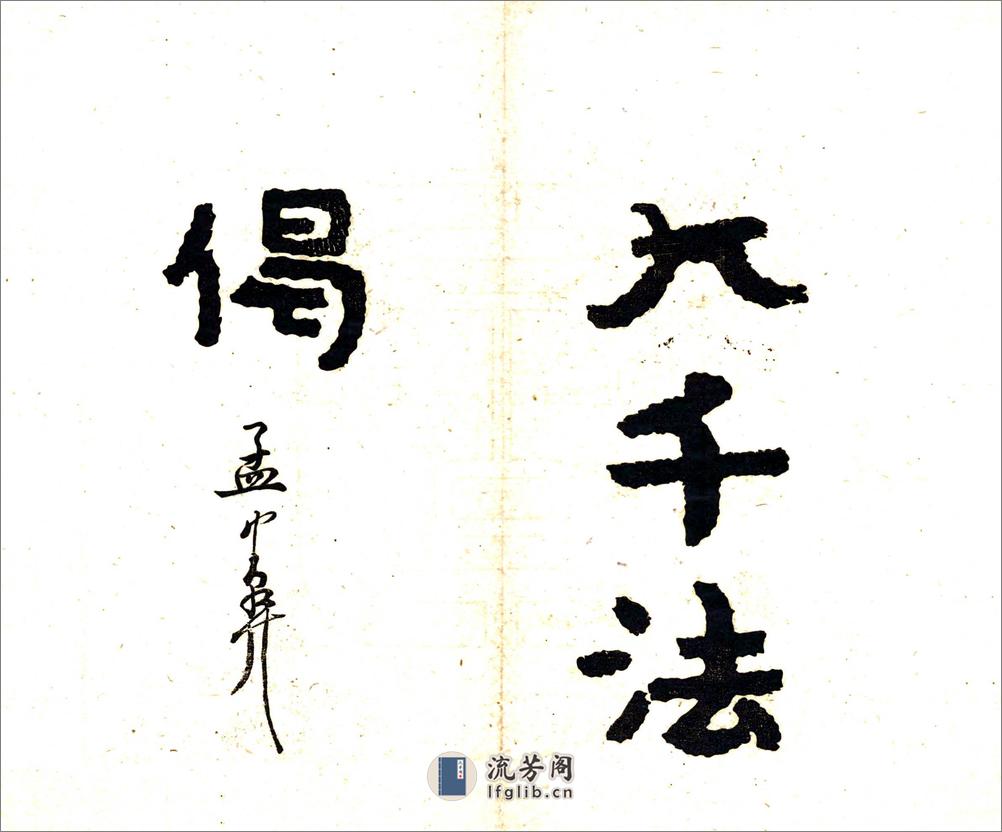 大千法
偈
孟中
流芳阁
lfglib.cn